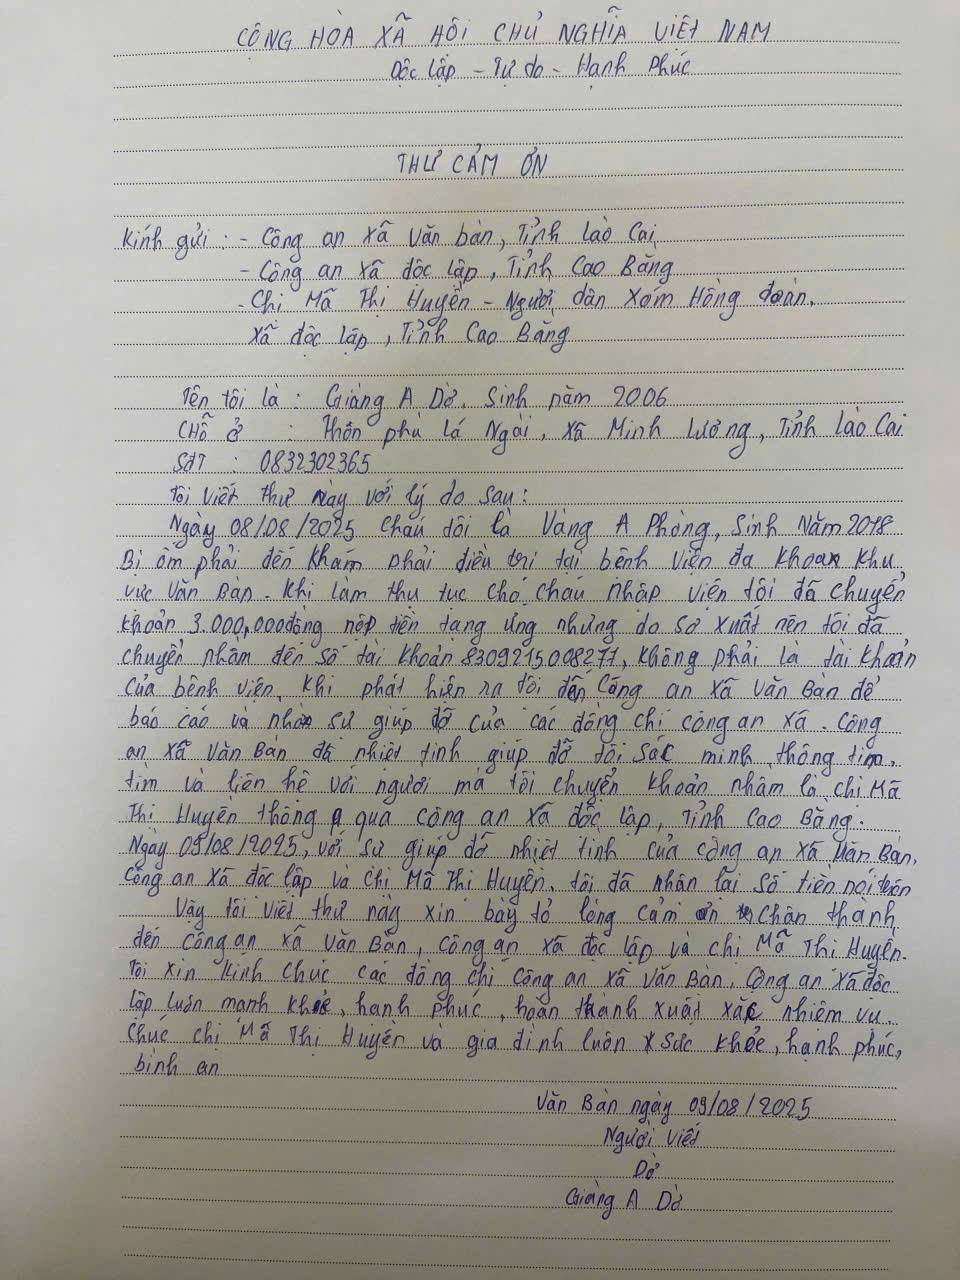 CỘNG HÒA XÃ HỘI CHỦ NGHĨA VIỆT NAM
Độc lập - Tự do - Hạnh Phúc
THƯ CẢM ƠN
Kính gửi: - Công an xã Văn bàn, Tỉnh Lào Cai
- Công an xã độc lập, Tỉnh Cao Bằng
- Chị Mã Thị Huyền - Người dân Xóm Hồng đoàn,
Xã độc lập, Tỉnh Cao Bằng
Tên tôi là : Giàng A Dờ. Sinh năm 2006
Chỗ ở : Thôn phù lá Ngài, xã Minh Lương, Tỉnh Lào Cai
Sđt : 0832302365
Tôi viết thư này với lý do sau:
Ngày 08/08/2025 cháu tôi là Vàng A Phòng, Sinh Năm 2018
Bị ốm phải đến khám phải điều trị tại bệnh viện đa khoan khu
vực Văn Bàn. Khi làm thủ tục cho cháu nhập viện tôi đã chuyển
khoản 3.000,000đồng nộp tiền tạng ứng nhưng do sơ xuất nên tôi đã
chuyển nhầm đến số tài khoản 8309215008277, không phải là tài khoản
của bệnh viện, khi phát hiện ra tôi đến Công an xã Văn Bàn để
báo cáo và nhờ sự giúp đỡ của các đồng chí công an xã. Công
an xã Văn Bàn đã nhiệt tình giúp đỡ tôi sác minh, thông tim,
tìm và liên hệ với người mà tôi chuyển khoản nhầm là chị Mã
Thị Huyền thông qua công an xã độc lập, Tỉnh Cao Bằng.
Ngày 09/08/2025, với sự giúp đỡ nhiệt tình của công an xã Văn Bàn,
Công an xã độc lập và chị Mã Thị Huyền, tôi đã nhận lại số tiền nói trên
Vậy tôi viết thư này xin bày tỏ lòng cảm ơn chân thành
đến công an xã Văn Bàn, Công an xã độc lập và chị Mã Thị Huyền.
Tôi xin kính chúc các đồng chí công an xã Văn Bàn, Công an xã độc
lập luôn mạnh khỏe, hạnh phúc, hoàn thành xuất xắc nhiệm vụ.
Chúc chị Mã Thị Huyền và gia đình luôn sức khỏe, hạnh phúc,
bình an
Văn Bàn ngày 09/08/2025
Người viết
Dờ
Giàng A Dờ